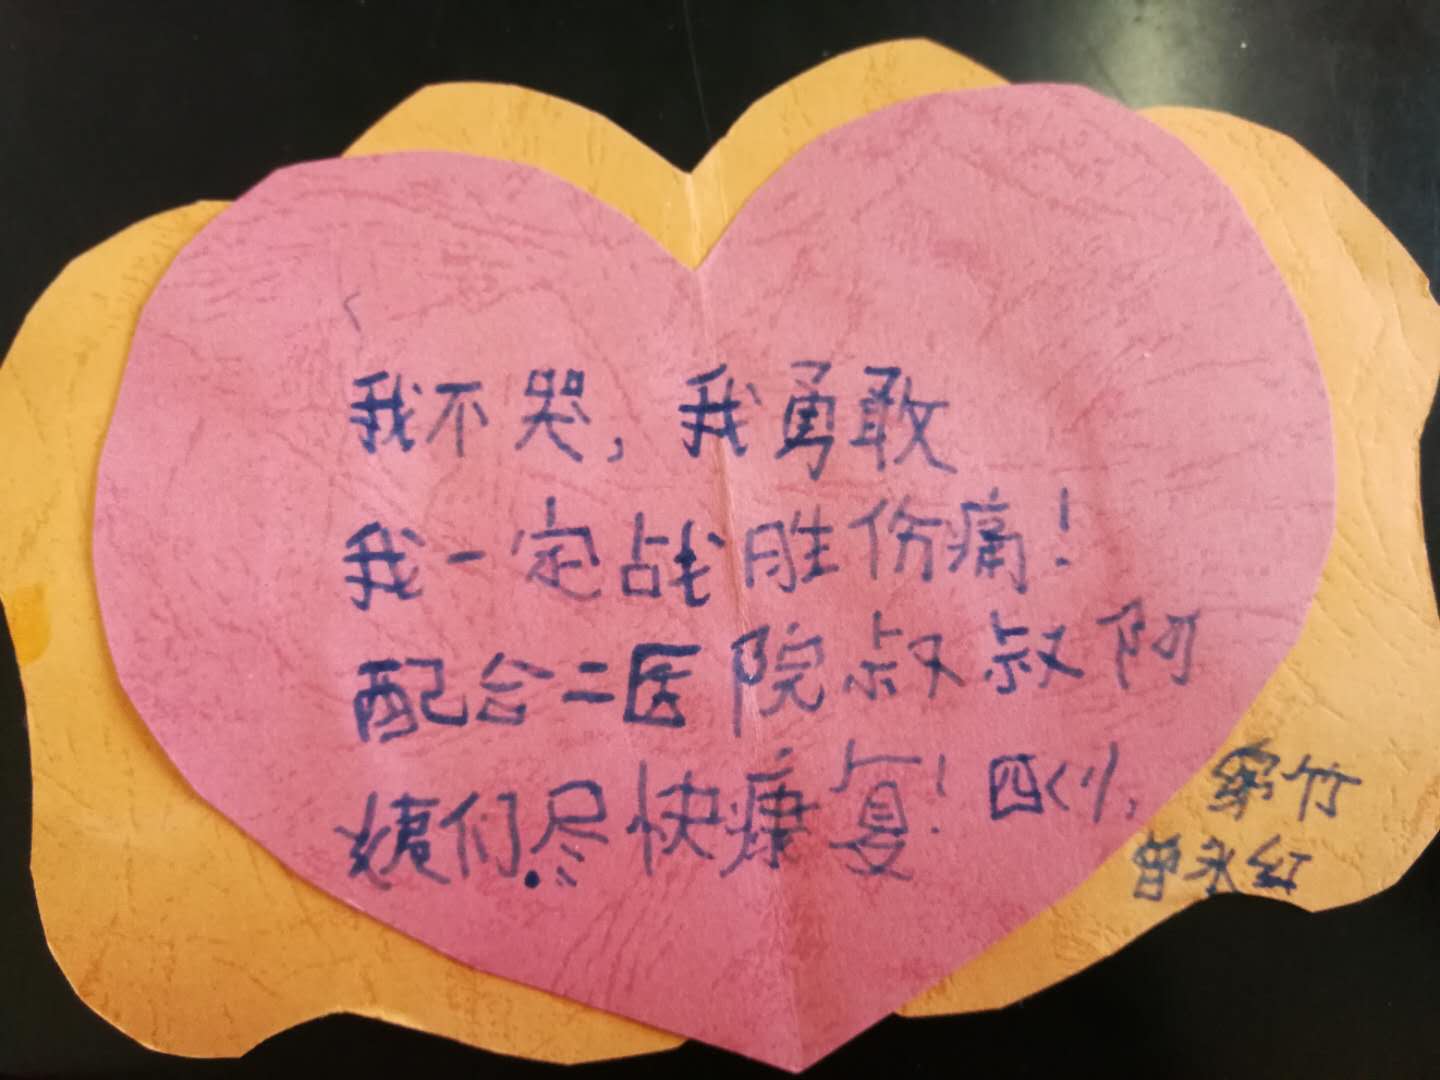 我不哭，我勇敢
我一定战胜伤痛！
配合二医院叔叔阿
姨们尽快康复！四川，绵竹
曾永红